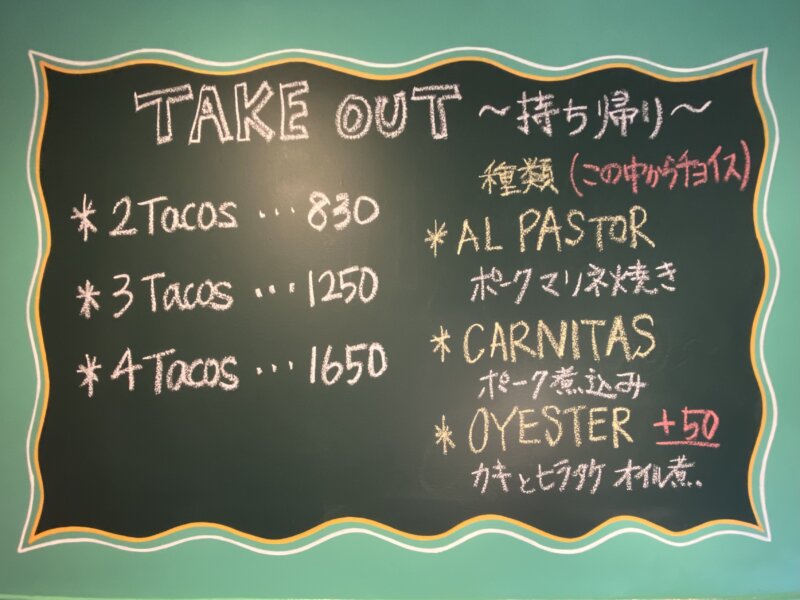 TAKE OUT ～持ち帰り～
* 2 Tacos … 830
* 3 Tacos … 1250
* 4 Tacos … 1650
種類 (この中からチョイス)
* AL PASTOR
ポークマリネ焼き
* CARNITAS
ポーク煮込み
* OYESTER +50
カキとヒラタケ オイル煮.